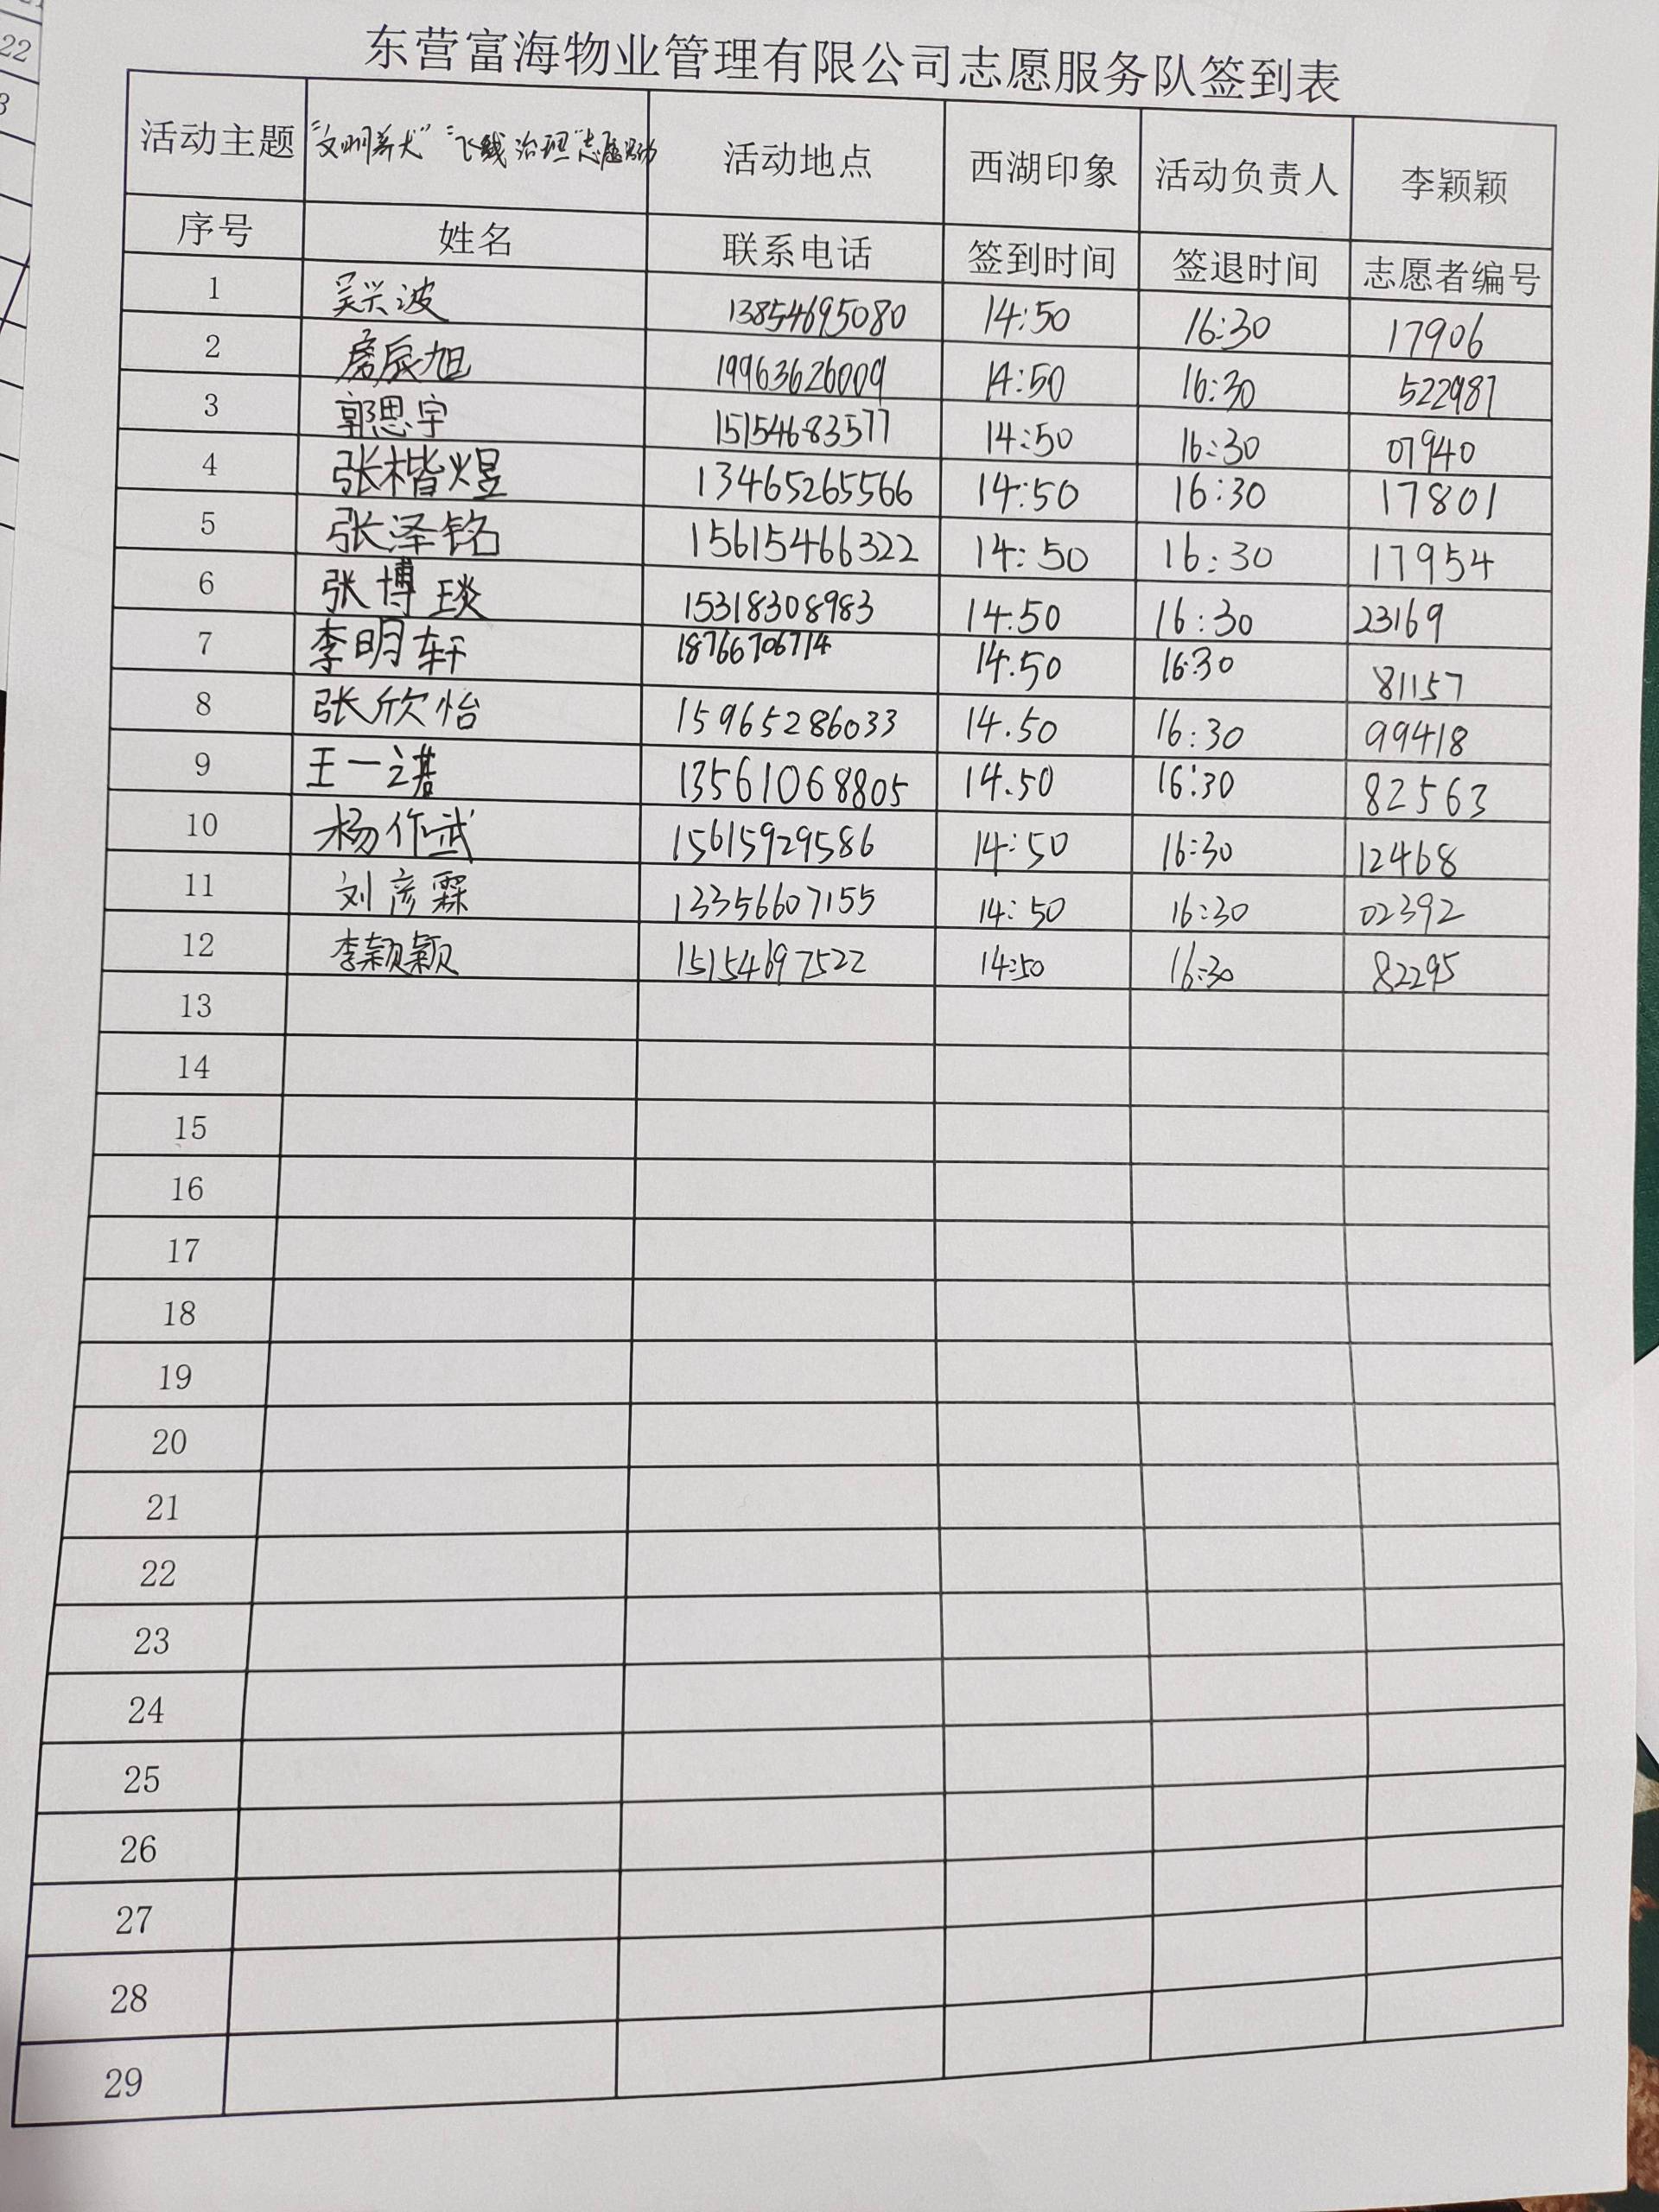 22
3
东营富海物业管理有限公司志愿服务队签到表
活动主题 "文明养犬" "飞线治理"志愿活动 活动地点 西湖印象 活动负责人 李颖颖
序号 姓名 联系电话 签到时间 签退时间 志愿者编号
1 吴兴波 13854695080 14:50 16:30 17906
2 房辰旭 19963626009 14:50 16:30 522981
3 郭思宇 15154683577 14:50 16:30 07940
4 张楷煜 13465265566 14:50 16:30 17801
5 张泽铭 15615466322 14:50 16:30 17954
6 张博琰 15318308983 14.50 16:30 23169
7 李明轩 18766706714 14.50 16:30 81157
8 张欣怡 15965286033 14.50 16:30 99418
9 王一诺 13561068805 14.50 16:30 82563
10 杨作武 15615929586 14:50 16:30 12468
11 刘彦霖 13356607155 14:50 16:30 02392
12 李颖颖 15154697522 14:50 16:30 82295
13
14
15
16
17
18
19
20
21
22
23
24
25
26
27
28
29